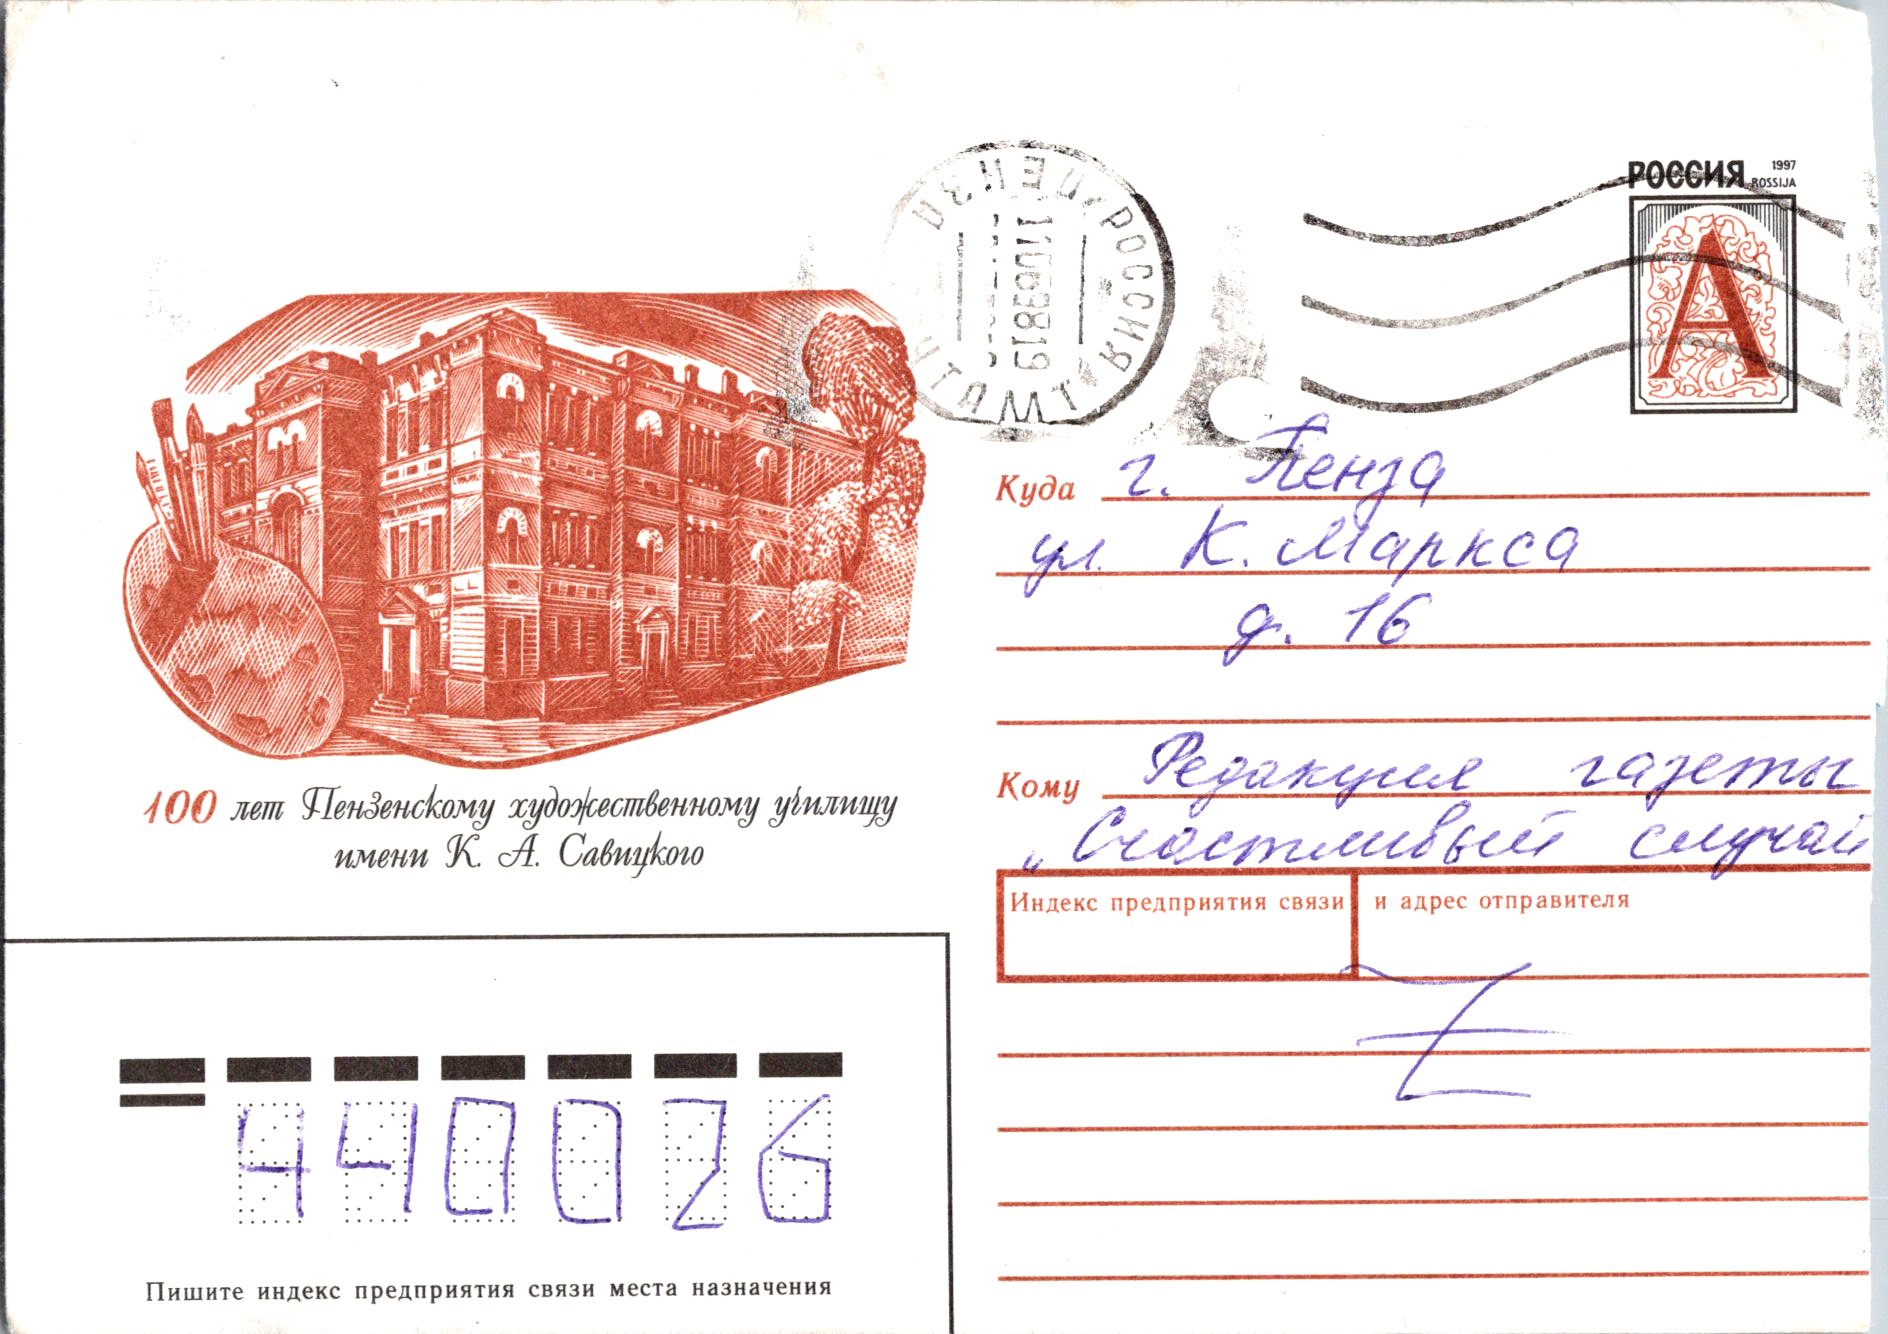 РОССИЯ 1997
ROSSIJA
А
РОССИЯ, ПЕНЗА
11069819
Куда г. Пенза
ул. К. Маркса
д. 16
Кому Редакция газеты
„Счастливый случай
Индекс предприятия связи и адрес отправителя
100 лет Пензенскому художественному училищу
имени К. А. Савицкого
440026
Пишите индекс предприятия связи места назначения